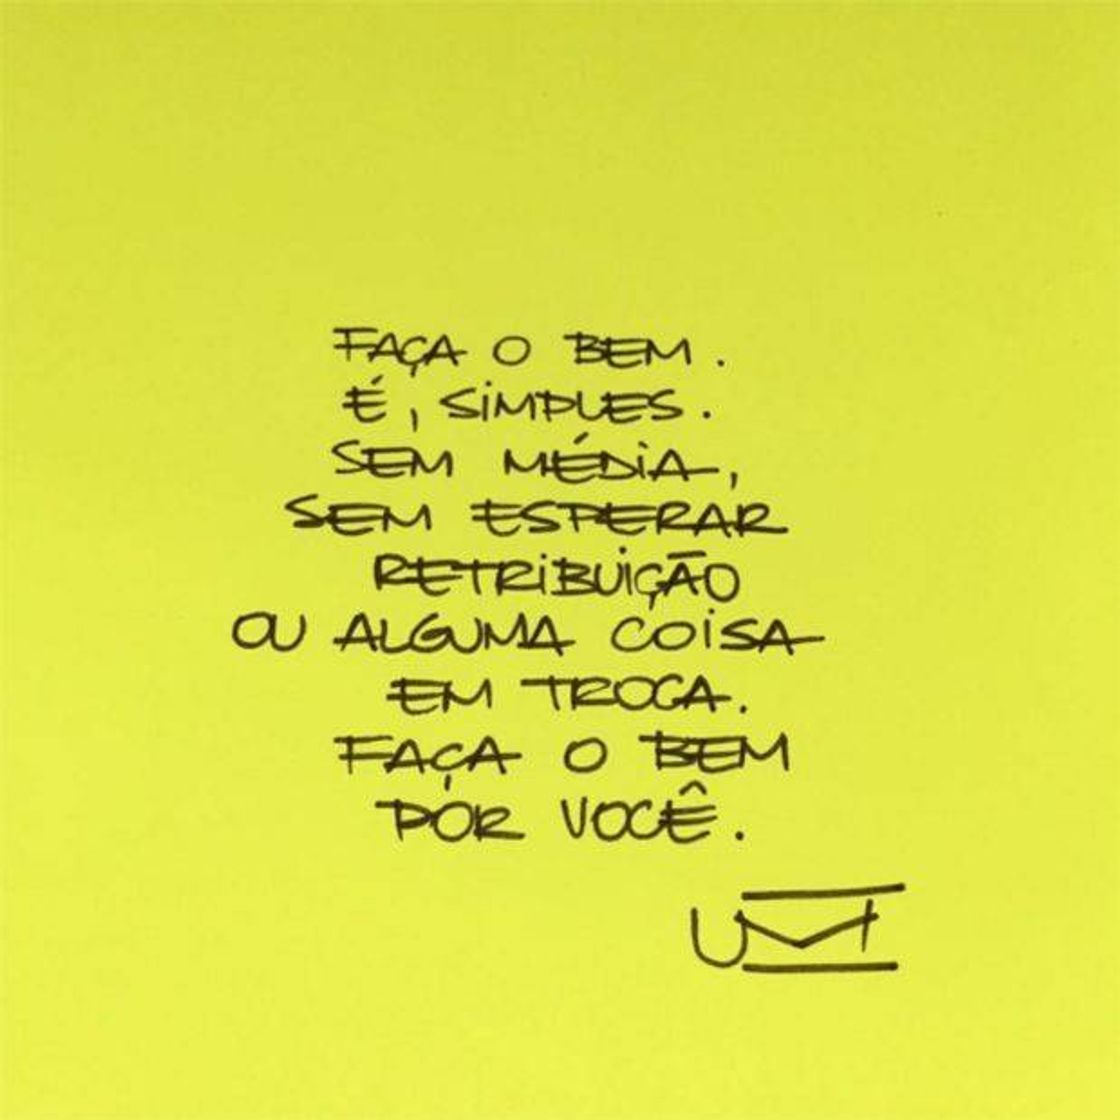 FAÇA O BEM.
É, SIMPLES.
SEM MÉDIA,
SEM ESPERAR
RETRIBUIÇÃO
OU ALGUMA COISA
EM TROCA.
FAÇA O BEM
POR VOCÊ.